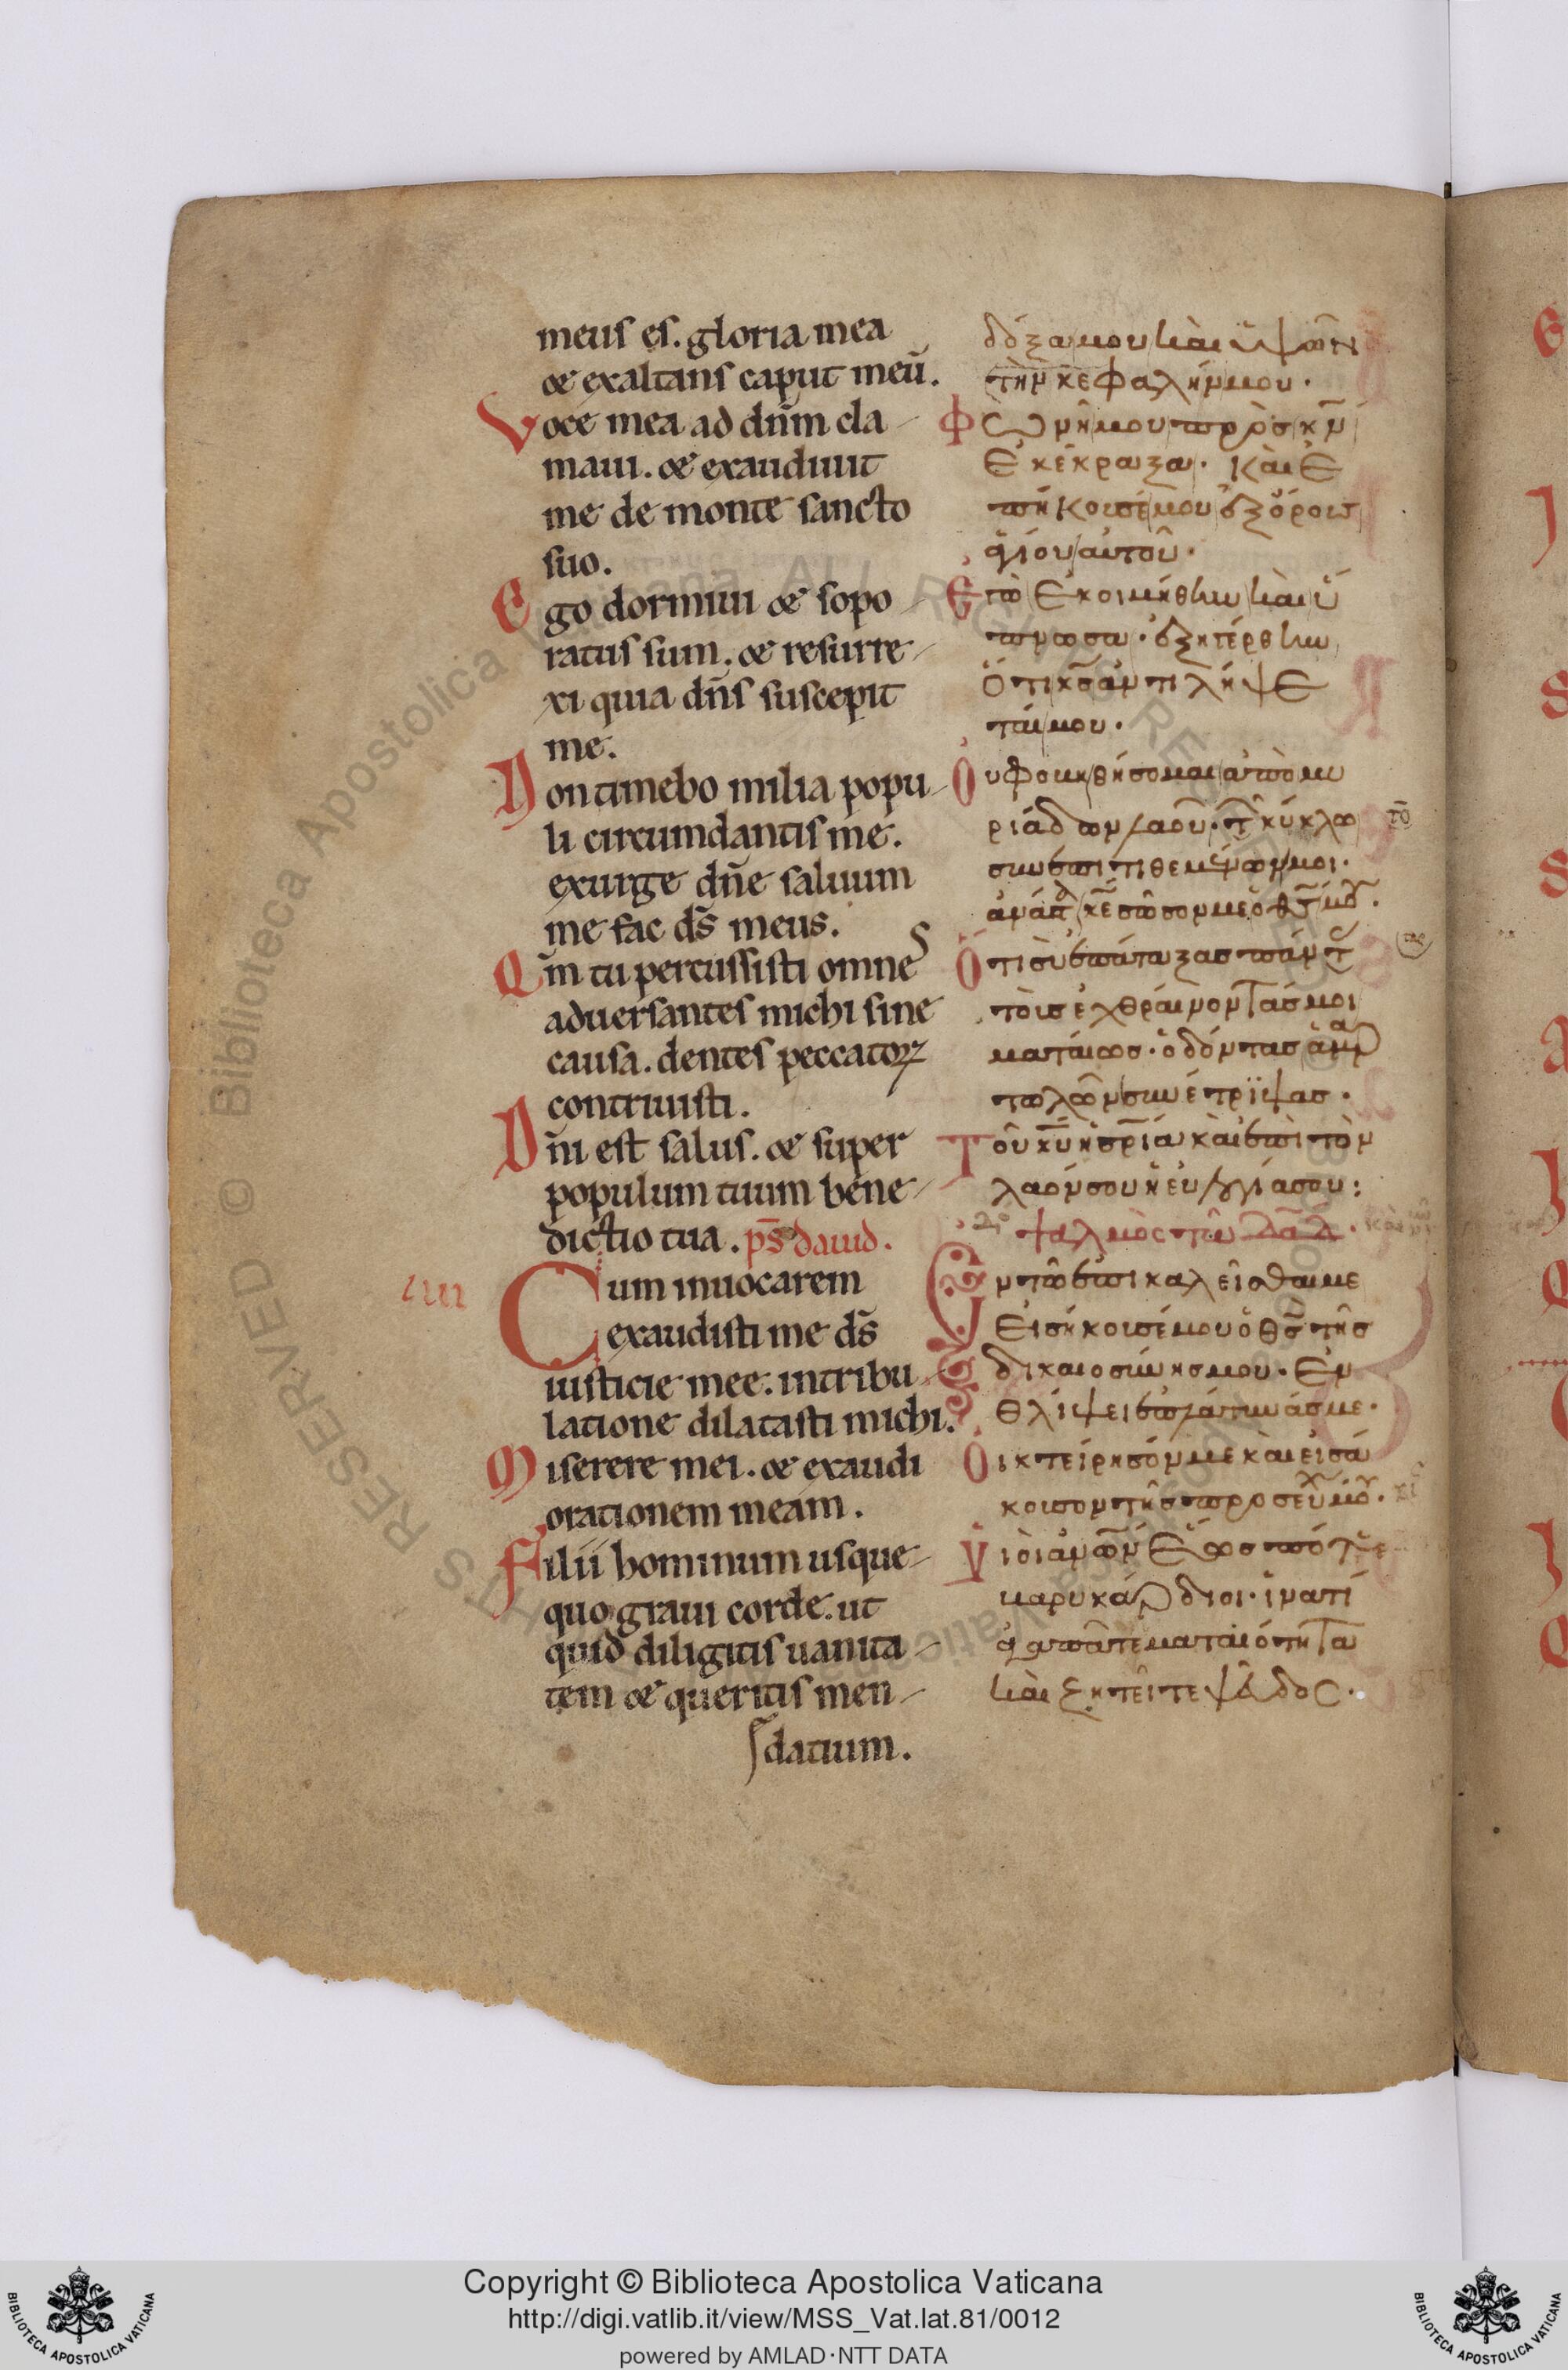 meus es. gloria mea
& exaltans caput meū.
Voce mea ad dn̄m cla
maui. & exaudiuit
me de monte sancto
suo.
Ego dormiui & sopo
ratus sum. & resurre
xi quia dn̄s suscepit
me.
Non timebo milia popu
li circumdantis me.
exurge dn̄e saluum
me fac ds̄ meus.
Qm̄ tu percussisti omnes
aduersantes michi sine
causa. dentes peccatoꝝ
contriuisti.
Dn̄i est salus. & super
populum tuum bene
dictio tua. ps̄ dauid.
iiii
Cum inuocarem
exaudisti me ds̄
iusticie mee. in tribu
latione dilatasti michi.
Miserere mei. & exaudi
orationem meam.
Filii hominum usque
quo graui corde. ut
quid diligitis uanita
tem & queritis men
datium.
δόξα μου καὶ ὑψῶν
τὴν κεφαλήν μου.
Φωνῆ μου πρὸς κν̄
ἐκέκραξα. καὶ ἐ
πήκουσέ μου ἐξ ὄρους
ἁγίου αὐτοῦ.
Ἐγὼ ἐκοιμήθην καὶ ὕ
πνωσα. ἐξηγέρθην
ὅτι κς̄ ἀντιλήψε
ταί μου.
Οὐ φοβηθήσομαι ἀπὸ μυ
ριάδων λαοῦ. τ̄ κύκλω
συνεπιτιθεμένων μοι.
ἀνάστ κε̄ σῶσόν με ὁ θς̄ μου.
Ὅτι σὺ ἐπάταξας πάντ
τοὺς ἐχθραίνοντάς μοι
ματαίως. ὀδόντας ἁμαρ
τωλῶν συνέτριψας.
Τοῦ κῡ ἡ σρ̄ία καὶ ἐπὶ τὸν
λαόν σου ἡ εὐλογία σου:
ψαλμὸς τῶ δᾱδ.
Ἐν τῶ ἐπικαλεῖσθαί με
εἰσήκουσέ μου ὁ θς̄ τῆς
δικαιοσύνης μου. ἐν
θλίψει ἐπλάτυνάς με.
Οἰκτείρησόν με καὶ εἰσά
κουσον τῆς προσευχ μου.
Υἱοὶ ἀνω̄ν ἕως πότε
βαρυκάρδιοι. ἱνατί
ἀγαπᾶτε ματαιότητα
καὶ ζητεῖτε ψεῦδος.
Copyright © Biblioteca Apostolica Vaticana
http://digi.vatlib.it/view/MSS_Vat.lat.81/0012
powered by AMLAD·NTT DATA
BIBLIOTECA APOSTOLICA VATICANA
BIBLIOTECA APOSTOLICA VATICANA